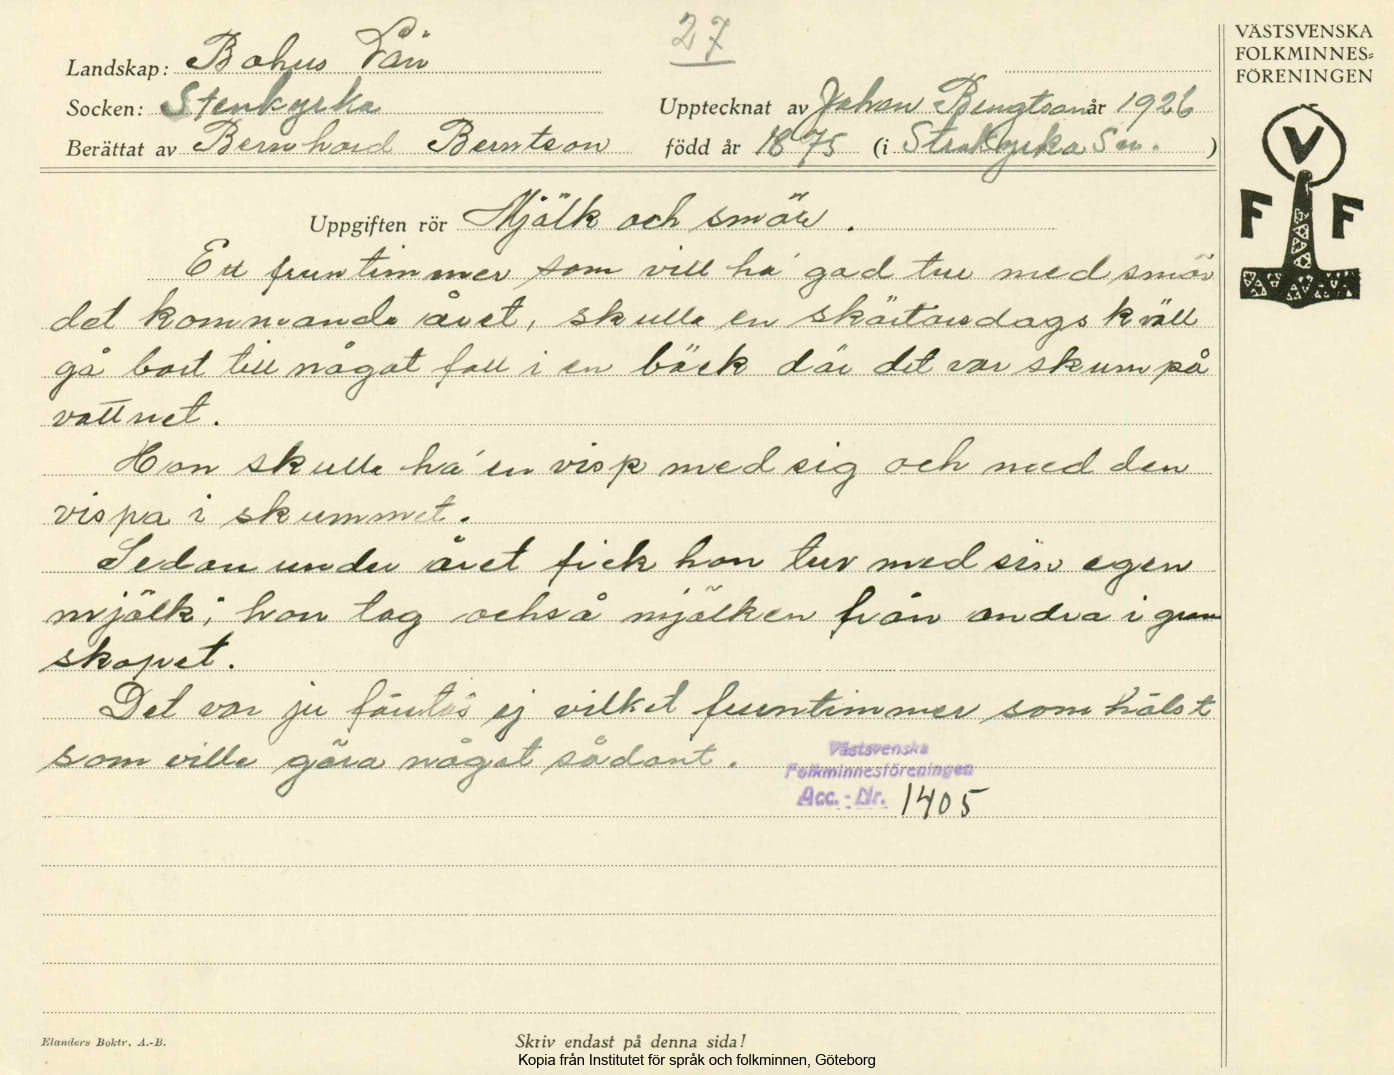 27
VÄSTSVENSKA
FOLKMINNES=
FÖRENINGEN
V
F F
Landskap: Bohus Län
Socken: Stenkyrka
Upptecknat av Johan Bengtson år 1926
Berättat av Bernhard Berntson
född år 1875 (i Stenkyrka Sn. )
Uppgiften rör Mjälk och smör.
Ett fruntimmer som vill ha' god tur med smör
det kommande året, skulle en skärtorsdagskväll
gå bort till något fall i en bäck där det var skum på
vattnet.
Hon skulle ha' en visp med sig och med den
vispa i skummet.
Sedan under året fick hon tur med sin egen
mjölk; hon tog också mjölken från andra i gran
skapet.
Det var ju förstås ej vilket fruntimmer som hälst
som ville göra något sådant.
Västsvenska
Folkminnesföreningen
Acc.-Nr. 1405
Elanders Boktr. A.-B.
Skriv endast på denna sida!
Kopia från Institutet för språk och folkminnen, Göteborg